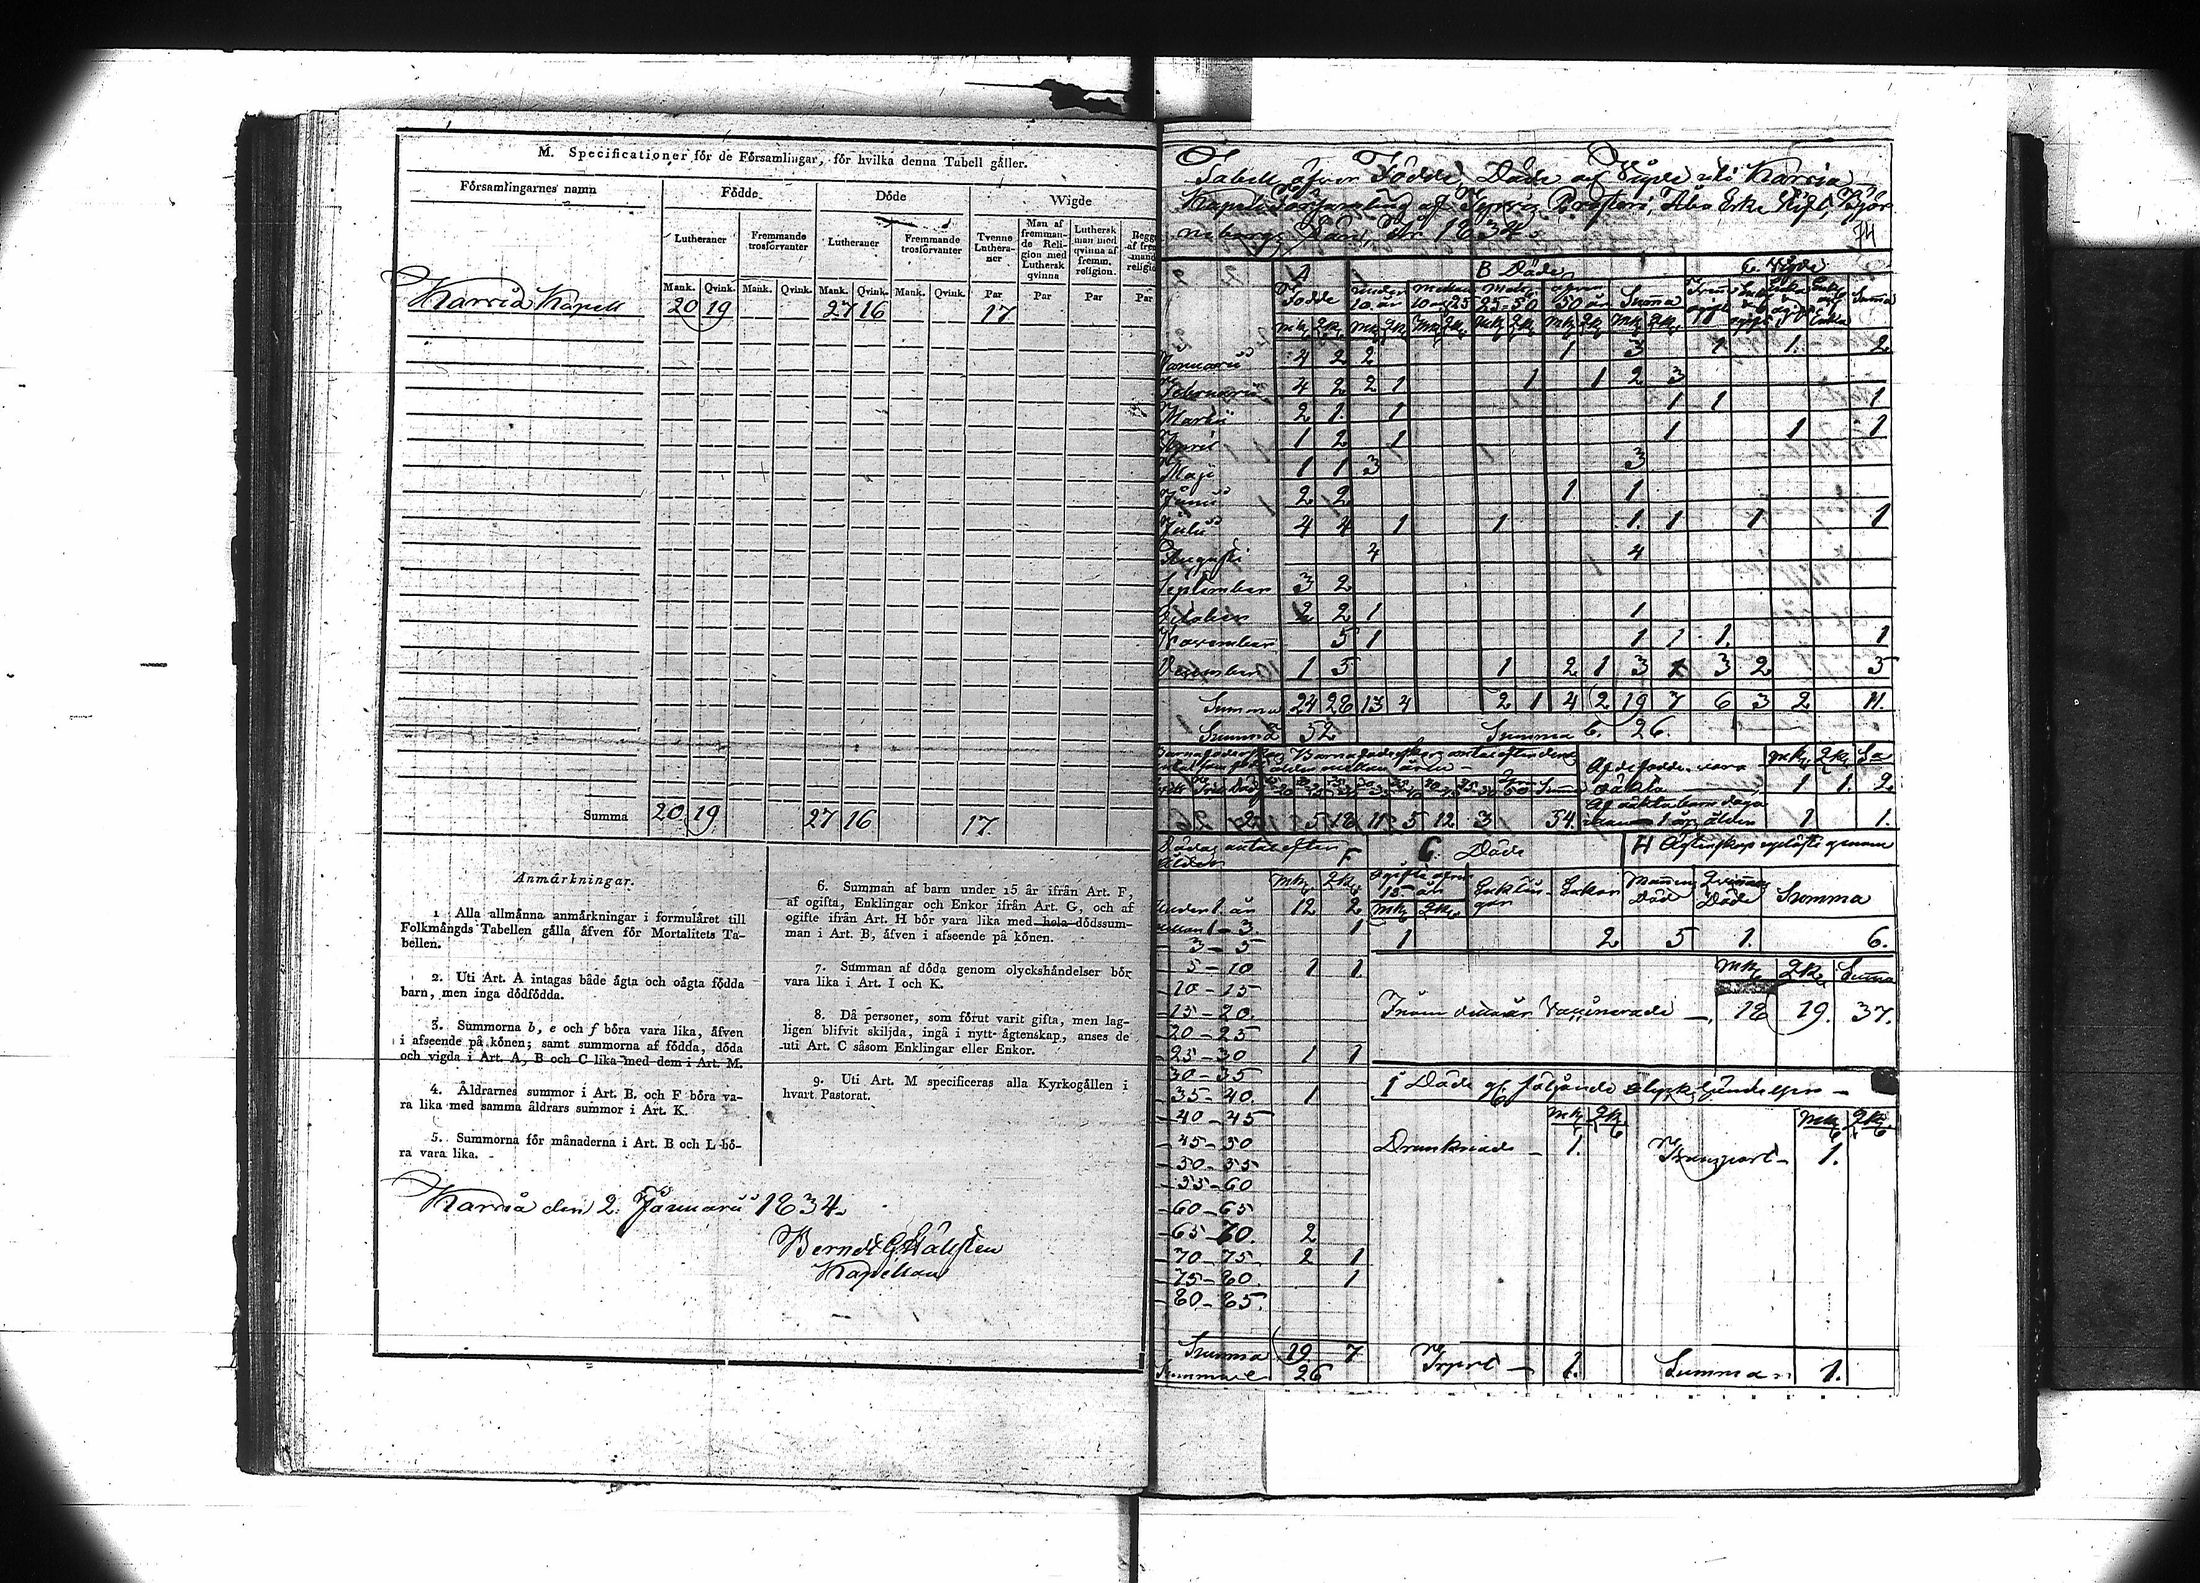 M. Specificationer för de Församlingar, för hvilka denna Tabell gäller.
Församlingarnes namn Födde Döde Wigde
Lutheraner Fremmande trosförvanter Lutheraner Fremmande trosförvanter Tvenne Lutheraner Man af fremmande Religion med Luthersk qvinna Luthersk man med qvinna af fremm. religion.
Mank. Qvink. Mank. Qvink. Mank. Qvink. Mank. Qvink. Par Par Par Par
Karvia Kapell 20 19 27 16 17
Summa 20 19 27 16 17
Anmärkningar.
1 Alla allmänna anmärkningar i formuläret till
Folkmängds Tabellen gälla äfven för Mortalitets Ta-
bellen.
2. Uti Art. A intagas både ägta och oägta födda
barn, men inga dödfödda.
3. Summorna b, e och f böra vara lika, äfven
i afseende på könen; samt summorna af födda, döda
och vigda i Art. A, B och C lika med dem i Art. M.
4. Åldrarnes summor i Art. B. och F böra va-
ra lika med samma åldrars summor i Art. K.
5. Summorna för månaderna i Art. B och L bö-
ra vara lika.
6. Summan af barn under 15 år ifrån Art. F,
af ogifta, Enklingar och Enkor ifrån Art. G, och af
ogifte ifrån Art. H bör vara lika med hela dödssum-
man i Art. B, äfven i afseende på könen.
7. Summan af döda genom olyckshändelser bör
vara lika i Art. I och K.
8. Då personer, som förut varit gifta, men lag-
ligen blifvit skiljda, ingå i nytt ägtenskap, anses de
uti Art. C såsom Enklingar eller Enkor.
9. Uti Art. M specificeras alla Kyrkogällen i
hvart Pastorat.
Karvia den 2 Januarii 1834.
Berndt G Hállstén
Kapellan
Tabell öfver Födde Döde och Vigde uti Karvia
Kapells Församling af Prosteri, Åbo Erke Stift, Björ
neborgs Län, År 1834.
74
A B Döde C. Vigde
Födde under 10 år mellan 10 och 25 Mell. 25-50 öfver 50 år Summa Summa
mk qk mk qk mk qk mk qk mk qk mk qk
Januarii 4 2 2 1 3 1 1 2
Februarii 4 2 2 1 1 1 2 3
Martii 2 1 1 1 1 1
April 1 2 1 1 1 1
Maji 1 1 3 3
Junii 2 2 1 1
Julii 4 4 1 1 1 1 1 1
Augusti 4 4
September 3 2
October 2 2 1 1
November 5 1 1 1 1 1
December 1 5 1 2 1 3 1 3 2 5
Summa 24 28 13 4 2 1 4 2 19 7 6 3 2 11.
Summa 52 Summa b. 26.
Af de födde voro mk qk Sa
oäkta 1 1. 2
Af oäkta barn döda
1 år ålder 1 1.
2 5 18 11 5 12 3 54.
Dödas antal efter Ålder F
mk qk
Under 1 år 12 2
Mellan 1 - 3 1
3 - 5
5 - 10 1 1
10 - 15
15 - 20.
20 - 25
25 - 30 1 1
30 - 35
35 - 40. 1
40 - 45
45 - 50
50 - 55
55 - 60
60 - 65
65 - 70. 2
70 - 75 2 1
75 - 80. 1
80 - 85.
Summa 19 7
Summa e 26
G. Döde
Ogifte öfver 15 år Enklingar Enkor
mk qk
1 2
H Ägtenskap uplöste genom
Mannens Död Qvinnans Döde Summa
5 1. 6.
mk qk Summa
Inom detta år Vaccinerade 18 19. 37.
I Döde af följande olyckshändelser
mk qk mk qk
Drunknade 1. Transport 1.
Trprt 1. Summa 1.